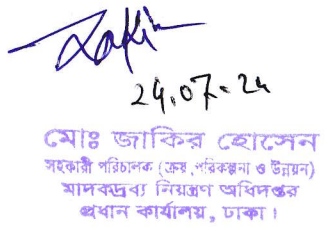 Zakir
24.07.24
মোঃ জাকির হোসেন
সহকারী পরিচালক (ক্রয়, পরিকল্পনা ও উন্নয়ন)
মাদকদ্রব্য নিয়ন্ত্রণ অধিদপ্তর
প্রধান কার্যালয়, ঢাকা।